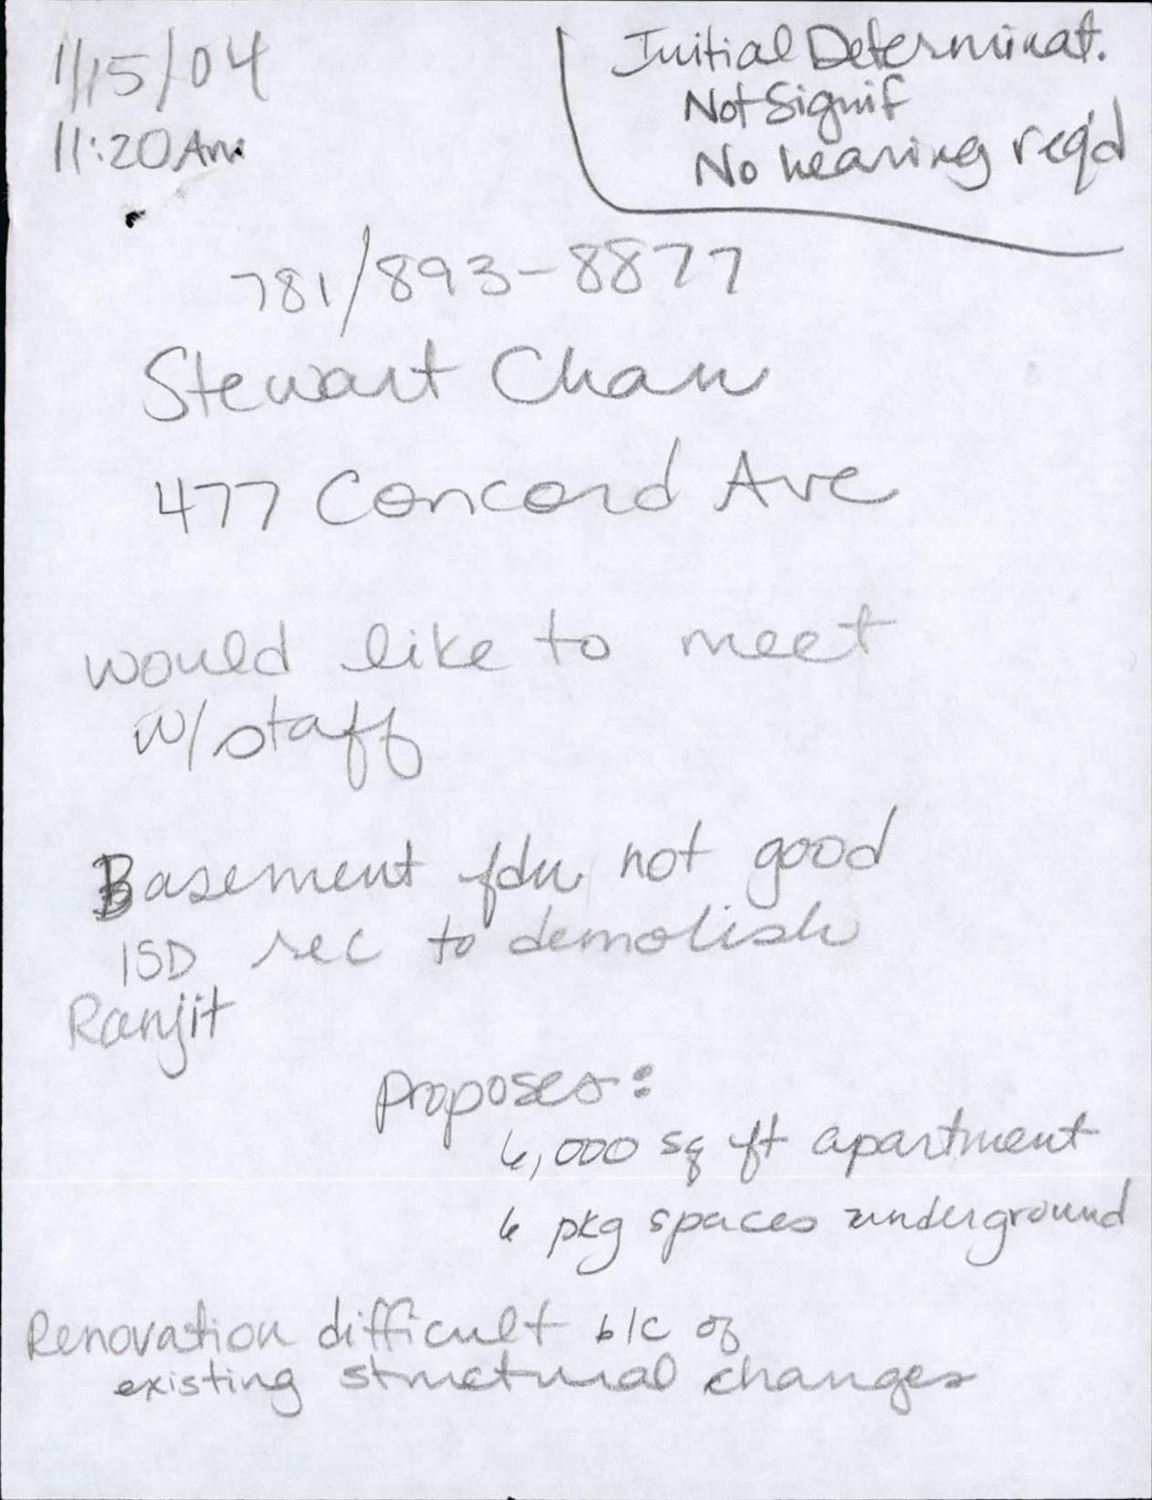 1/15/04
11:20 Am
Initial Determinat.
Not Signif
No hearing req'd
781/893-8877
Stewart Chan
477 Concord Ave
would like to meet
w/staff
Basement fdn not good
ISD rec to demolish
Ranjit
proposes:
6,000 sq ft apartment
6 pkg spaces underground
Renovation difficult b/c of
existing structural changes